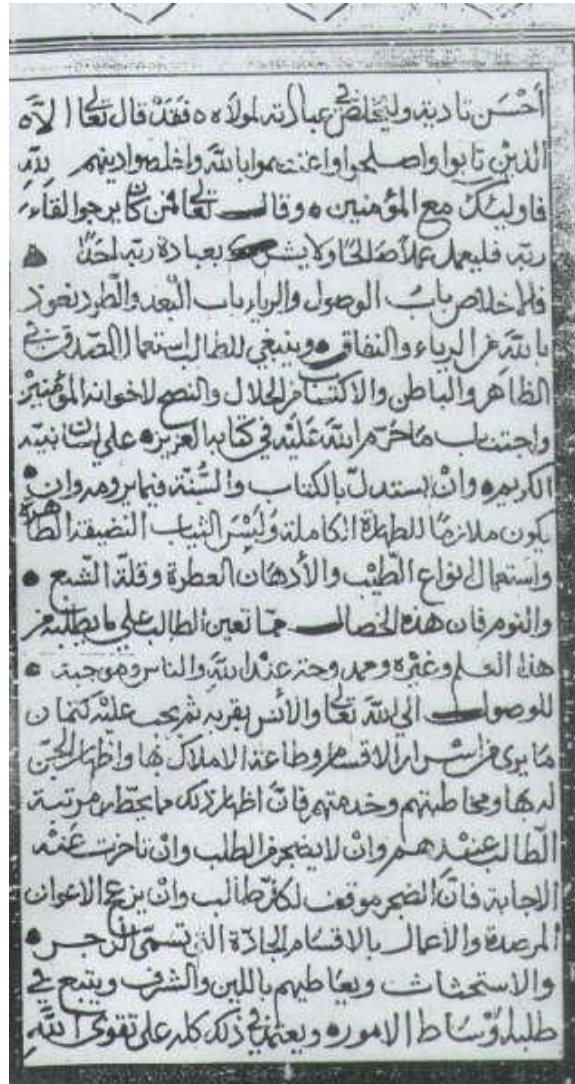 أحْسَن تاديته وليخلص في عبادته لمولاه ه فقَدْ قال تعالى الا
الذين تابوا واصلحوا واعتصموا بالله واخلصوا دينهم لله
فاوليك مع المؤمنين ه وقال تعالى فمن كان يرجوا لقاء
ربه فليعمل عملاً صَالحًا ولا يشرك بعبادة ربّه احَدًا
فالاخلاص بابُ الوصول والرياء باب البعد والطّرد نعوذ
بالله من الرياء والنفاق ه وينبغي للطالب استعمال الصّدق في
الظاهر والباطن والاكتساب من الحلال والنصح لاخوانه المؤمنين
واجتناب مَا حُرّم الله عَليْه في كتابه العزيز ه على لسان نبيّه
الكريم ه وانْ يستدلّ بالكتاب والسُّنة فيما يرومه وان
يكون ملازمًا للطهارة الكاملة ولبْسَ الثياب النضيفة الطاهرة
واستعمال انواع الطّيْب والأدهَان العطرة وقلّة الشّبع
والنوم فان هذه الخصال ممّا تعين الطالب على ما يطلبه من
هذا العلم وغيْره وممدوحة عنْد الله والناس وموجبة
للوصول الي الله تعالى والأنس بقربه ثم يجب عليْه كتمان
مَا يرى من اسْرار الاقسام وطاعة الاملاك بها واظهار الجنّ
له بها ومخاطبتهم وخدمتهم فانّ اظهار ذلك مما يحطّ من مرتبة
الطّالب عنْدهم وانْ لا يضجر من الطلب وانْ تاخرت عَنْه
الاجابة فانّ الضجر موقف لكلّ طالب وانْ يزعج الاعوان
المرصدة والاعمال بالاقسام الجادّة التي تسمّى الزجر
والاستحثاث ويعَاطيهم باللين والشرف ويتبع في
طلبه اوْسَاط الامور ه ويعتمد في ذلك كله على تقوى اللَّهِ